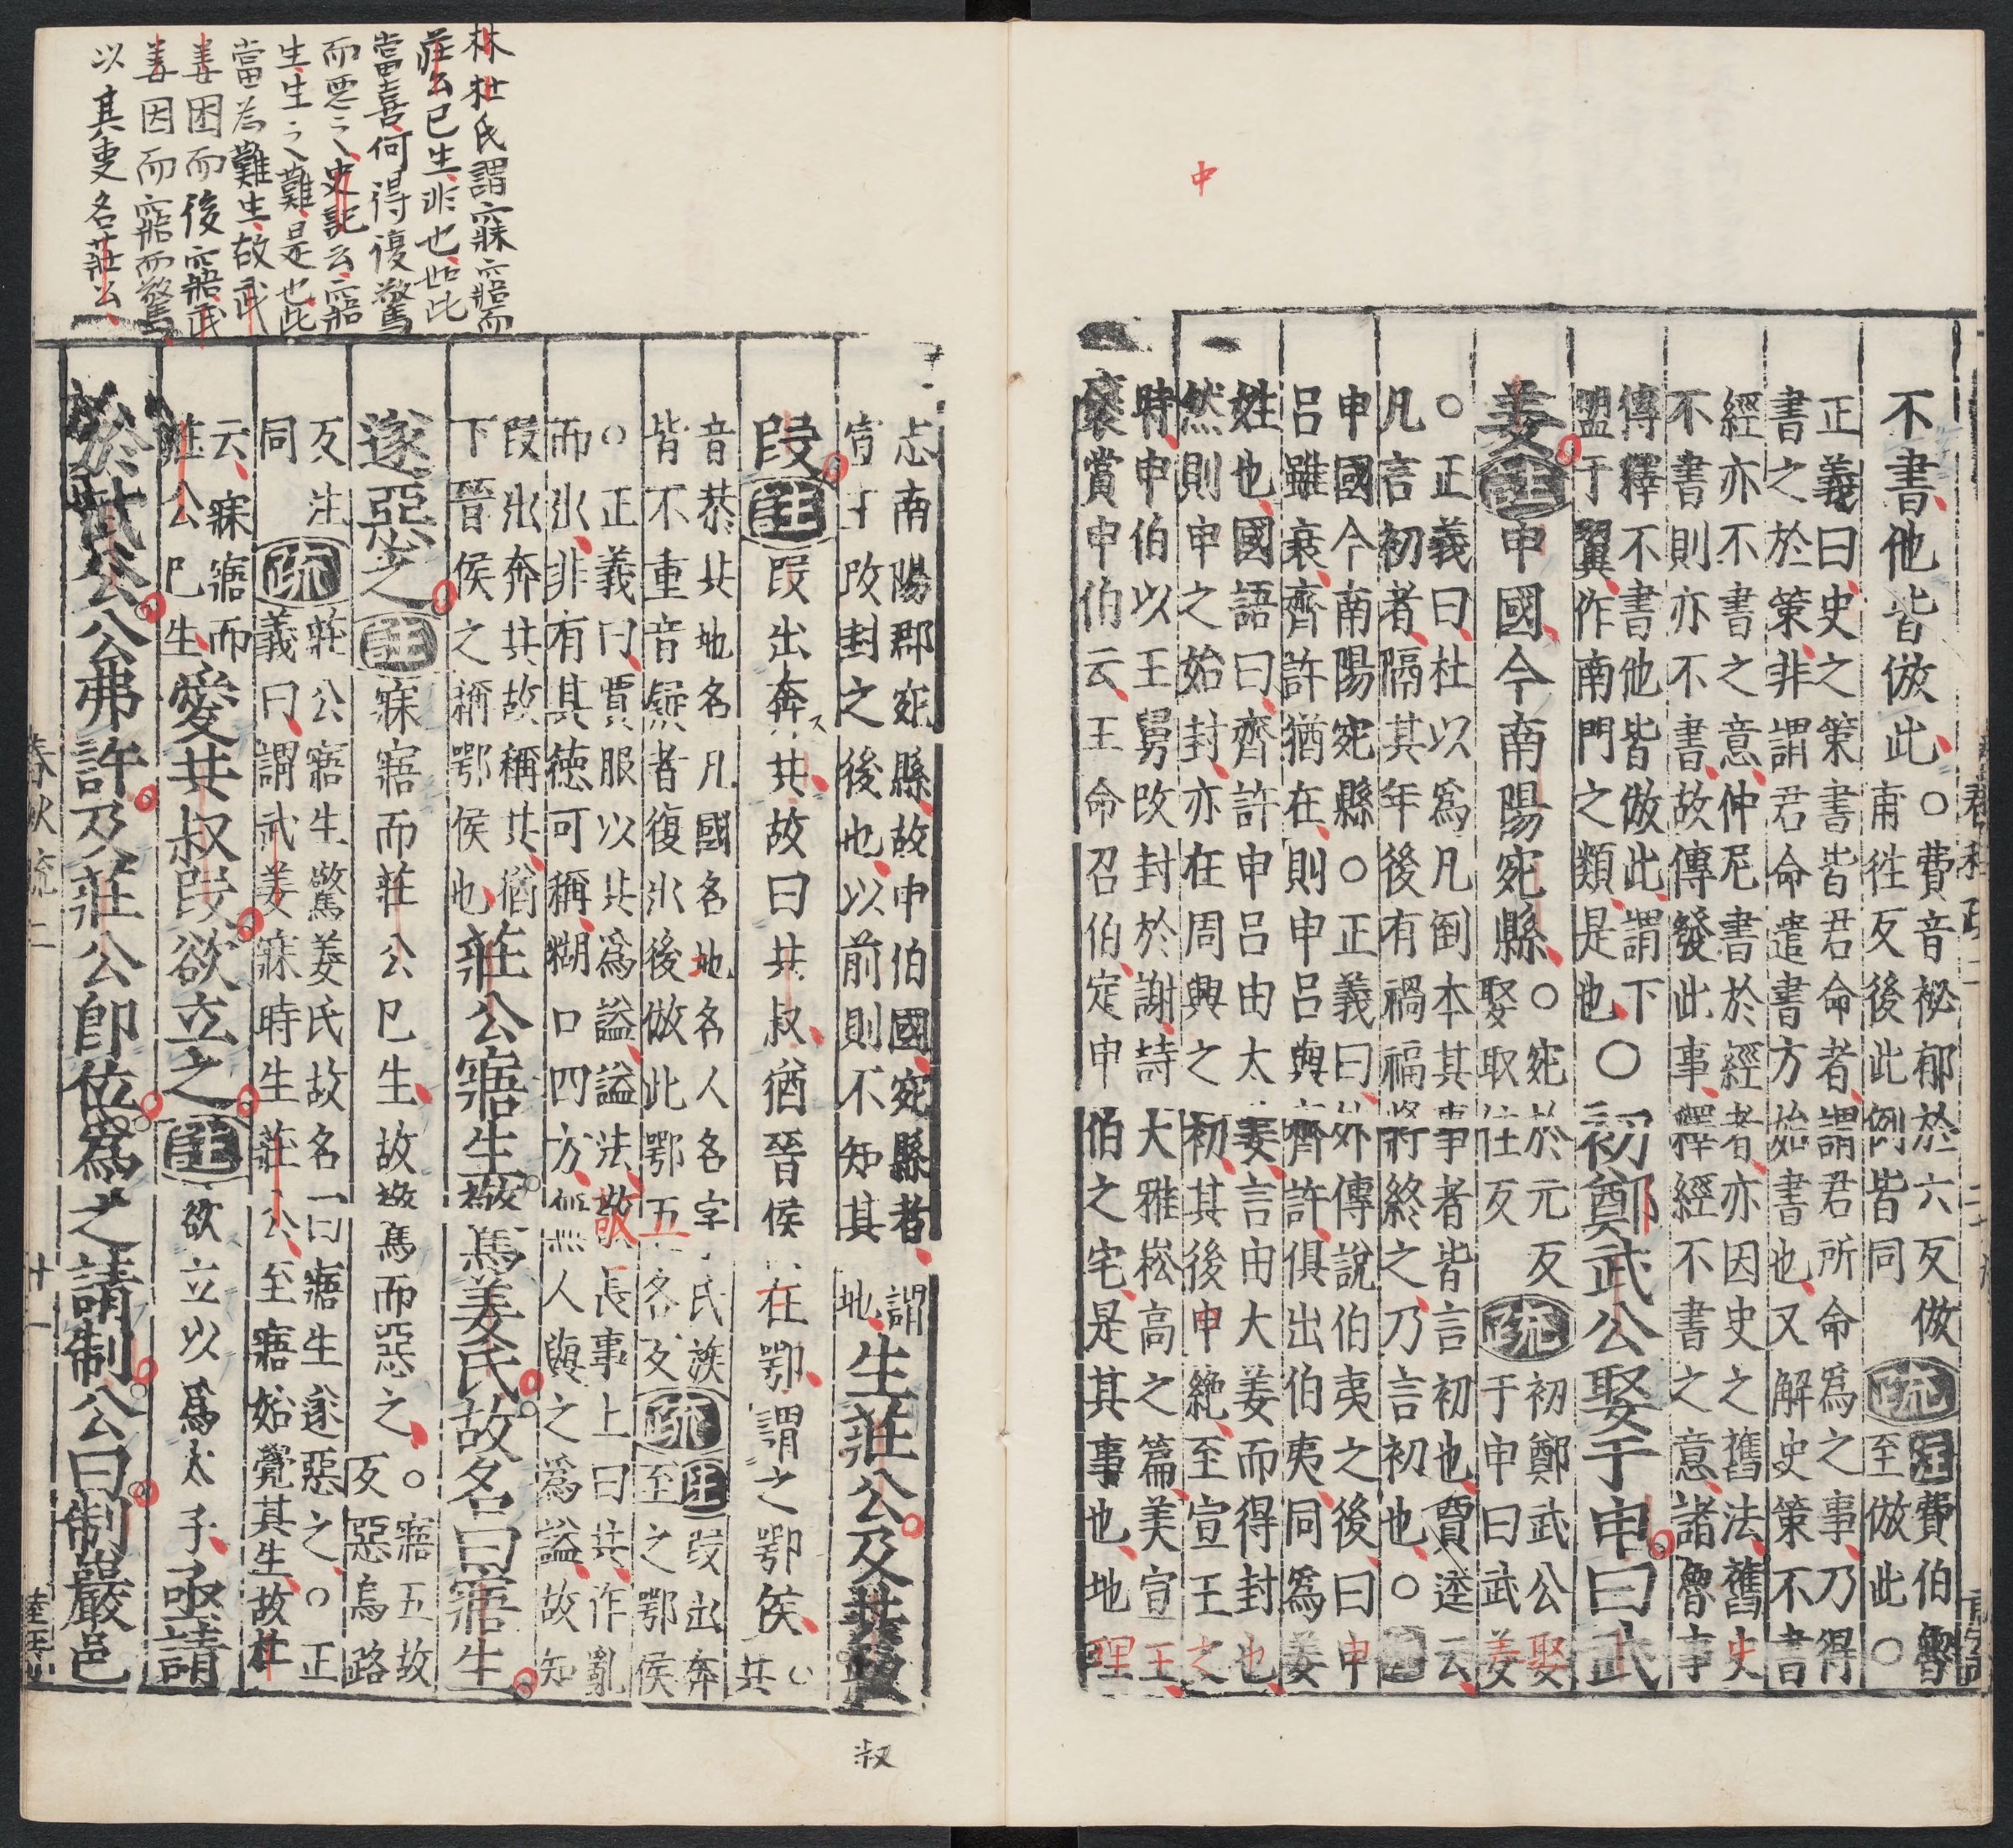 不書他皆倣此○費音祕郁於六反倣
甫徃反後此例皆同疏注費伯至倣此○
正義曰史之策書皆君命者謂君所命爲之事乃得
書之於策非謂君命遣書方始書也又解史策不書
經亦不書之意仲尼書於經者亦因史之舊法舊史
不書則亦不書故傳發此事釋經不書之意諸魯事
傳釋不書他皆倣此謂下
盟于翼作南門之類是也○初鄭武公娶于申曰武
姜注申國今南陽宛縣○宛於元反
娶取住反疏初鄭武公娶
于申曰武姜
○正義曰杜以爲凡倒本其事者皆言初也賈逵云
凡言初者隔其年後有禍福將終之乃言初也○
申國今南陽宛縣○正義曰外傳說伯夷之後曰申
呂雖衰齊許猶在則申呂與齊許俱出伯夷同爲姜
姓也國語曰齊許申呂由太姜言由大姜而得封也
然則申之始封亦在周興之初其後申絶至宣王之
時申伯以王舅改封於謝詩大雅崧高之篇美宣王
襃賞申伯云王命召伯定申伯之宅是其事也地理
志南陽郡宛縣故申伯國宛縣者謂
宣王改封之後也以前則不知其地生莊公及共叔
段注段出奔共故曰共叔猶晉侯在鄂謂之鄂侯○共
音恭共地名凡國名地名人名字氏族
皆不重音疑者復出後倣此鄂五各反疏注段出奔
至之鄂侯
○正義曰賈服以共爲謚謚法敬長事上曰共作亂
而出非有其徳可稱糊口四方無人與之爲謚故知
段出奔共故稱共猶
下晉侯之稱鄂侯也莊公寤生驚姜氏故名曰寤生
遂惡之注寐寤而莊公已生故驚而惡之○寤五故
反惡烏路
反注
同疏莊公寤生驚姜氏故名曰寤生遂惡之○正
義曰謂武姜寐時生莊公至寤始覺其生故杜
云寐寤而
莊公已生愛共叔段欲立之注欲立以爲太子亟請
於武公公弗許及莊公即位爲之請制公曰制巖邑
叔
林杜氏謂寐寤而
莊公已生非也如此
當喜何得復驚
而惡之史記云寤
生生之難是也此
當爲難生故武
姜困而後寤武
姜因而寤而驚
以其更名莊公
春秋疏二
廿一
中